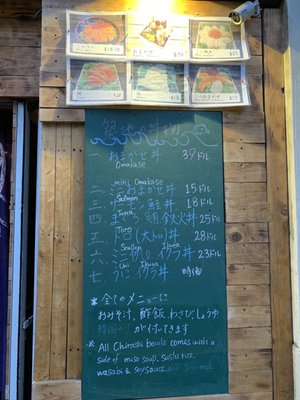 築地の丼物
一 おまかせ丼 39ドル
Omakase
mini Omakase
二 ミニおまかせ丼 15ドル
Salmon
三 サーモン鮭丼 18ドル
Tuna
四 鮪鉄火丼 25ドル
Toro
五 トロ(大トロ)丼 28ドル
Scallop Ikura
六 ミニ帆立イクラ丼 23ドル
Uni Ikura
七 うにイクラ丼 時価
*全てのメニューに
おみそ汁、酢飯、わさび、しょうゆ
が付いてきます
※ All Chirashi bowls comes with a
side of miso soup, sushi rice,
wasabi & soy sauce and seaweed.